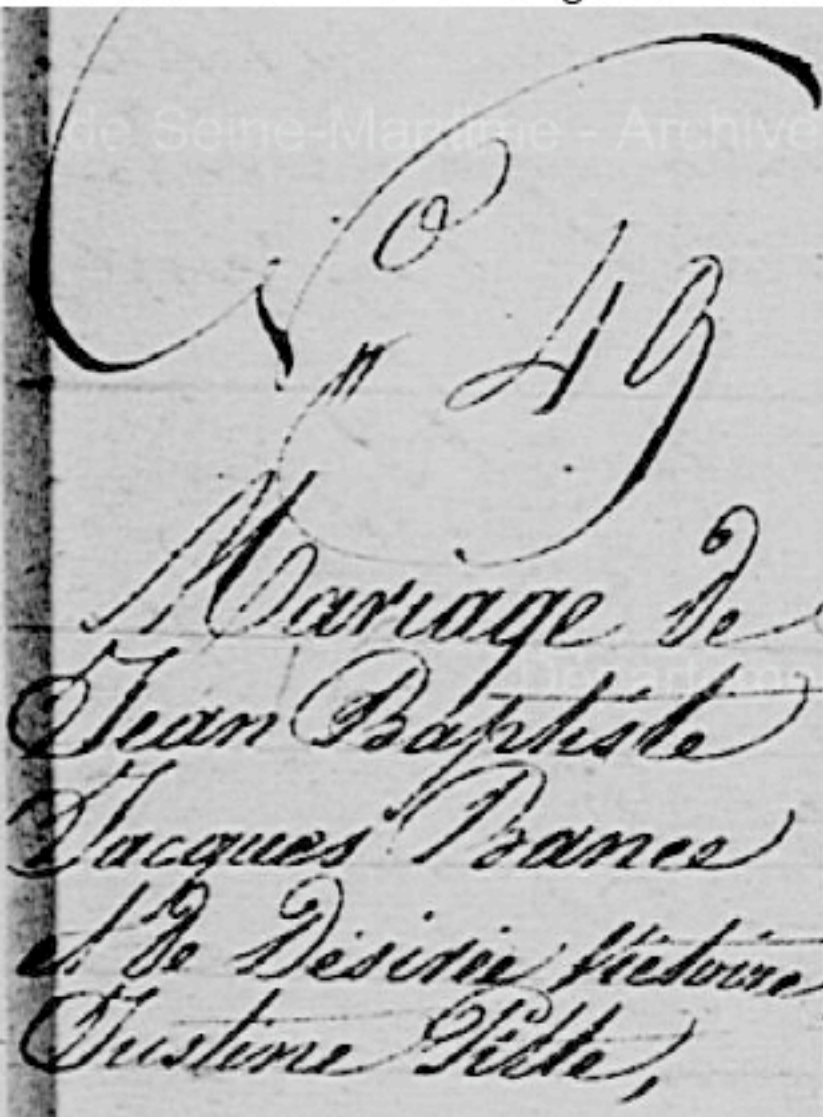 de Seine-Maritime - Archive
N° 49
Mariage de
Départeme
Jean Baptiste
Jacques Bance
et de Désirée Victoire
Justine